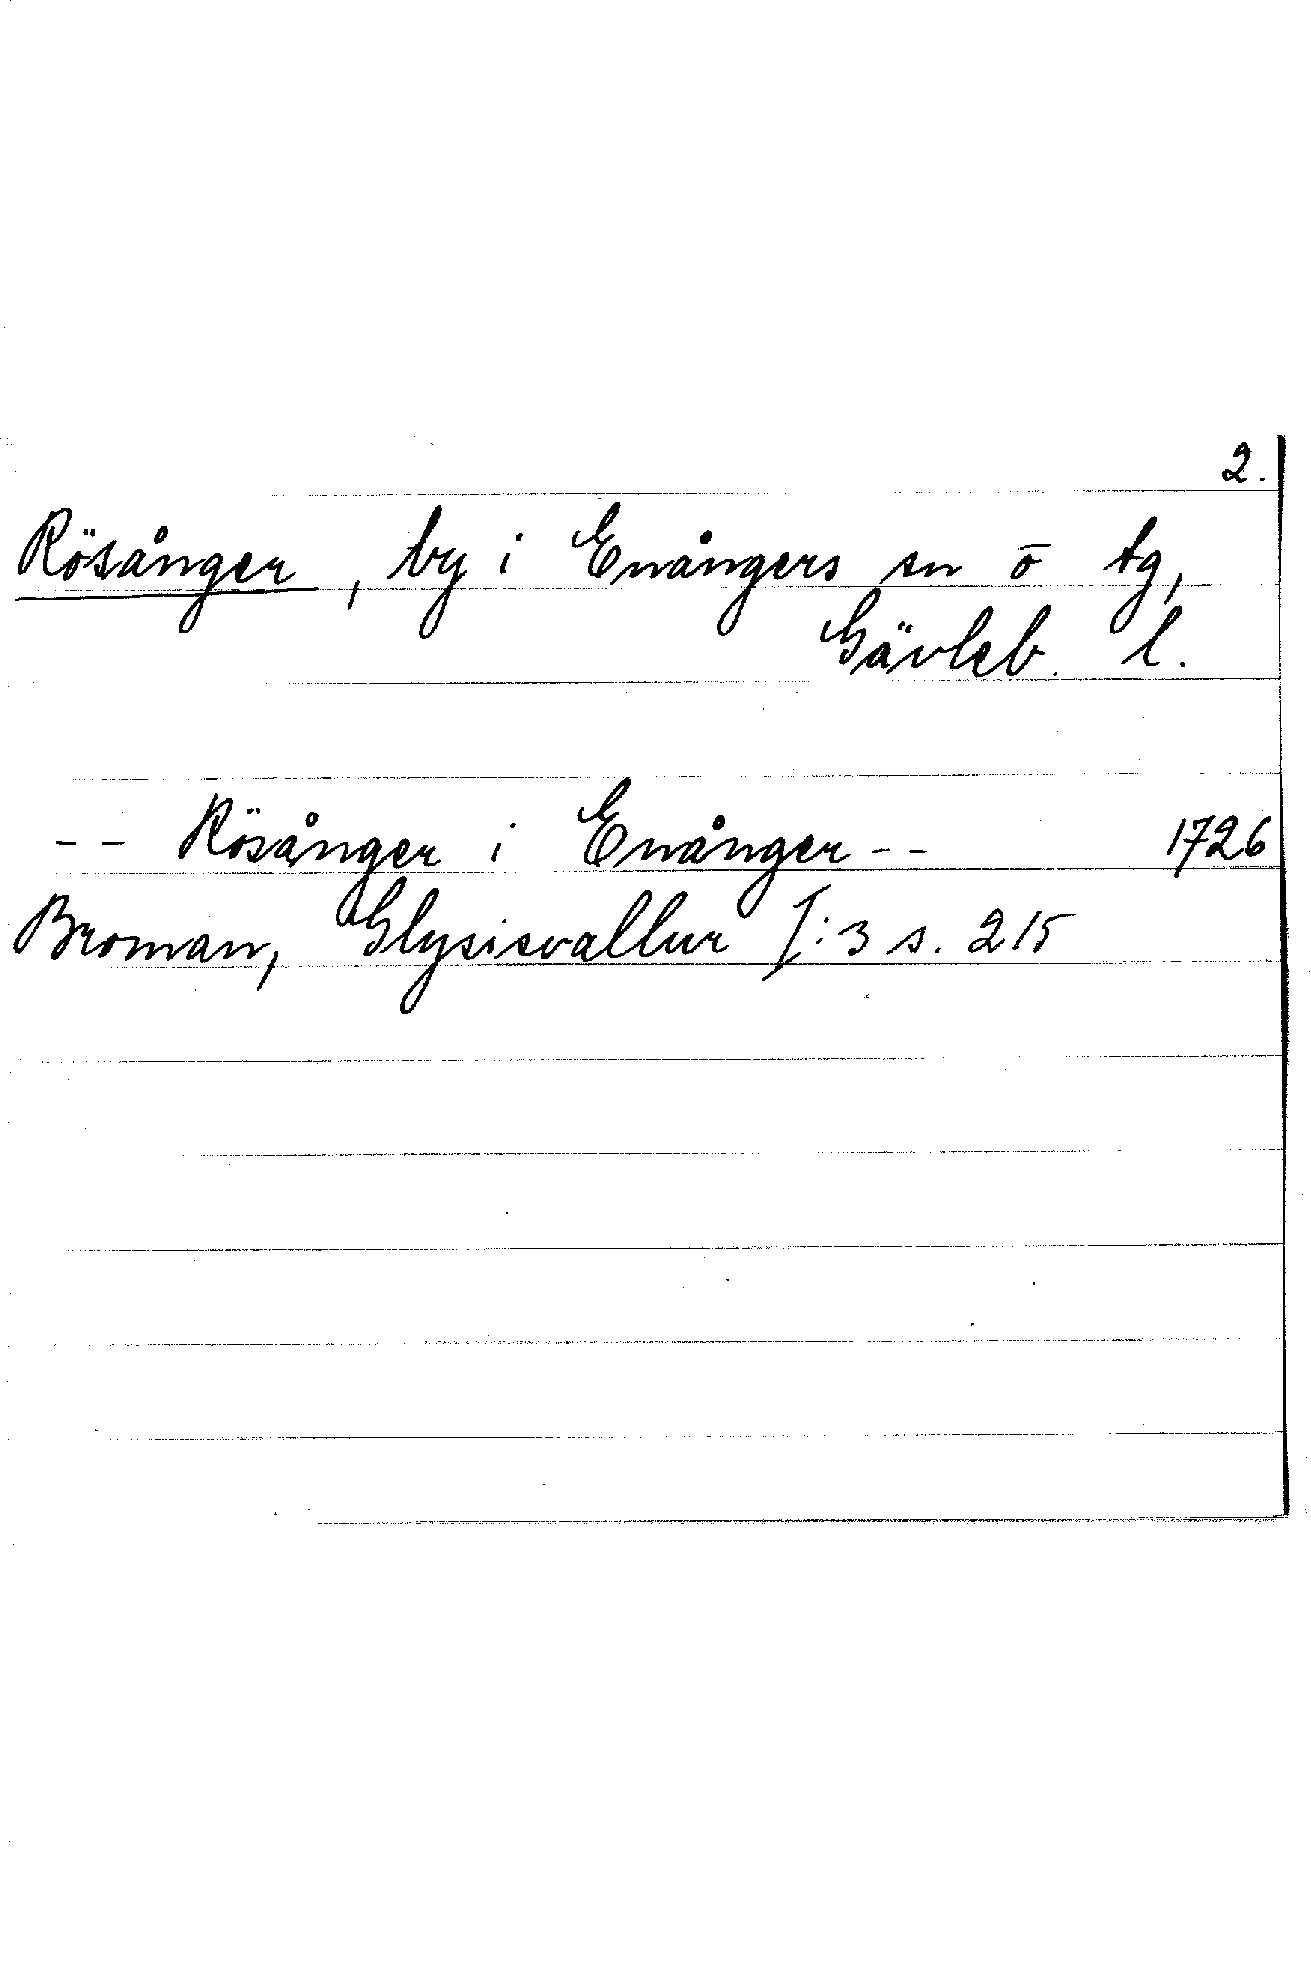 2.
Rösånger, by i Enångers sn ō tg,
Gävleb. l.
-- Rösånger i Enånger -- 1726
Broman, Glysisvallur I:3 s. 215